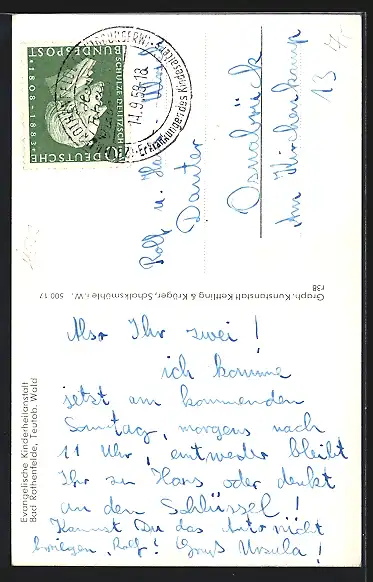 Also Ihr zwei!
ich komme
jetzt am kommenden
Sonntag, morgens nach
11 Uhr, entweder bleibt
Ihr zu Haus oder denkt
an den Schlüssel!
Kannst Du das Auto nicht
bringen, Rolf? Gruß Ursula!
Evangelische Kinderheilanstalt
Bad Rothenfelde, Teutob. Wald
Graph. Kunstanstalt Kettling & Krüger, Schalksmühle i. W. 500 17
r38
DEUTSCHE BUNDESPOST
SCHULZE DELITZSCH
*1808-1883*
10
14.9.58-18
Erkrankungen des Kindesalters
Rolf u.
Danter
Osnabrück
Am Kirchenkamp
13